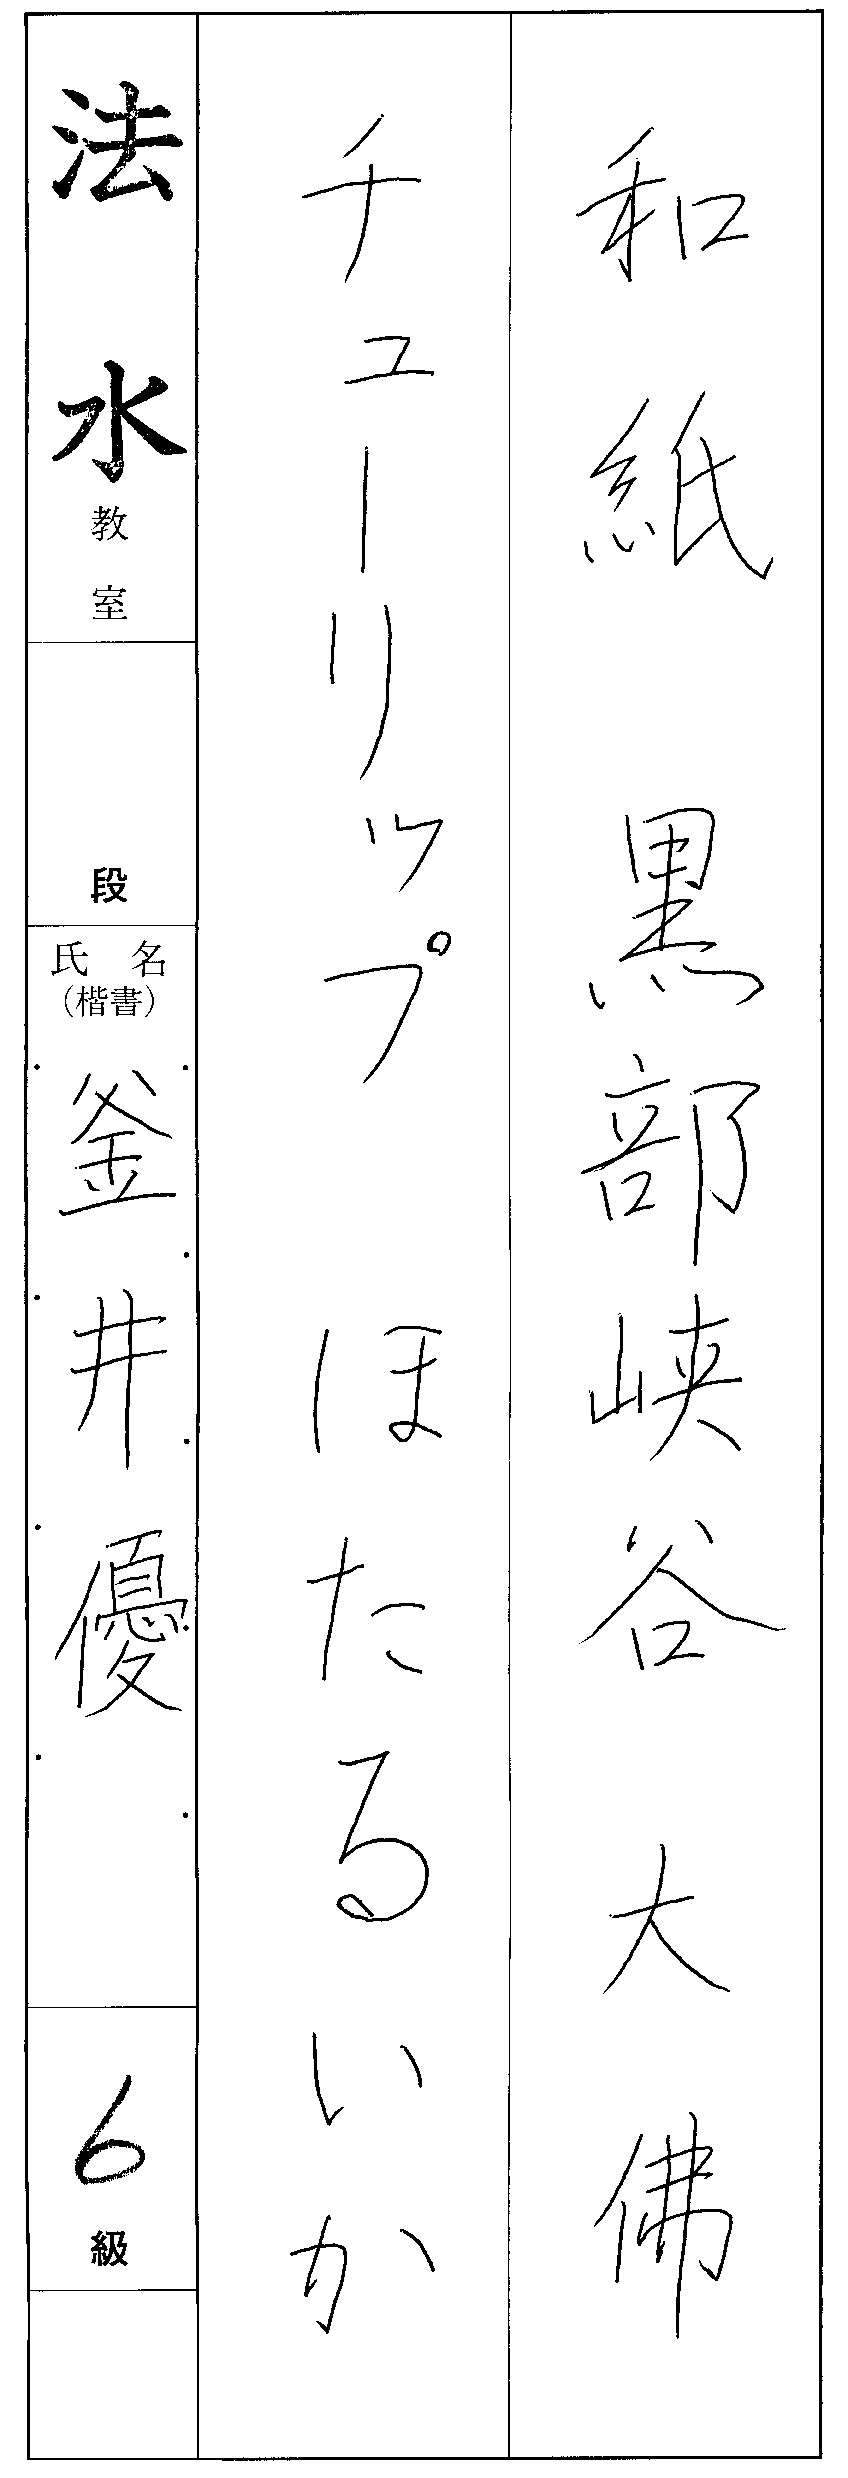 和紙　黒部峡谷　大佛
チューリップ　ほたるいか
法水教室
段
氏名
（楷書）
釜井優
6級